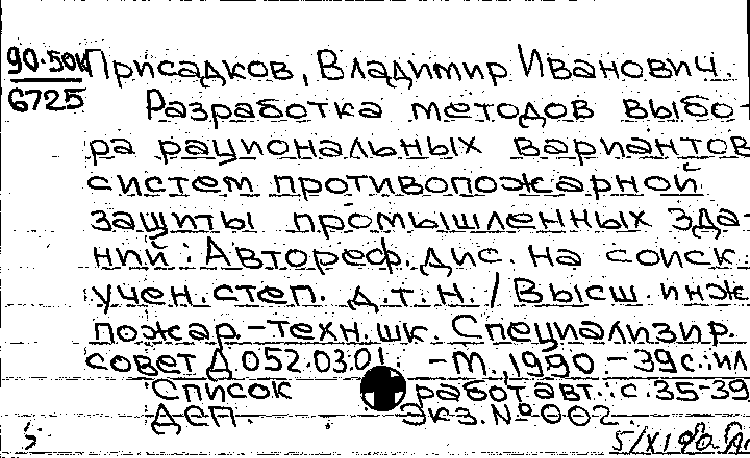 90-50к Присадков, Владимир Иванович.
6725 Разработка методов выбо-
ра рациональных вариантов
систем противопожарной
защиты промышленных зда-
ний : Автореф. дис. на соиск.
учен. степ. д.т.н. / Высш. инж
пожар.-техн. шк. Специализир.
совет Д 052.03.01. - М., 1990. - 39 с.: ил
Список работ авт.: с. 35-39
ДСП. Экз. № 002.
5/XI 90